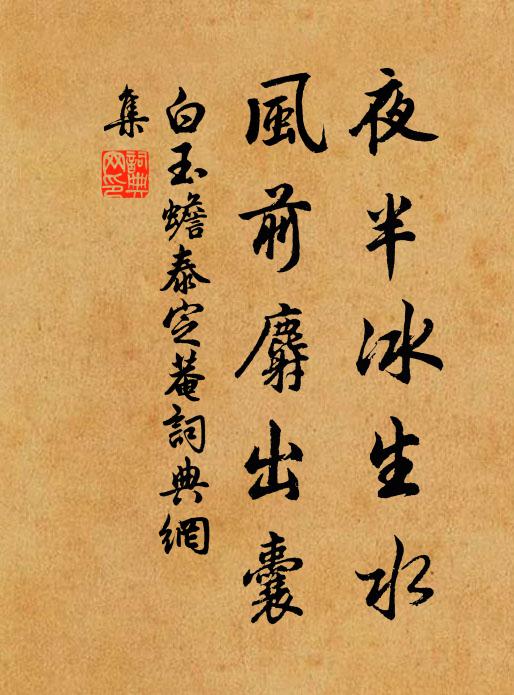 夜半冰生水
風前麝出囊
白玉蟾泰定菴詞典網
集
詞典网印